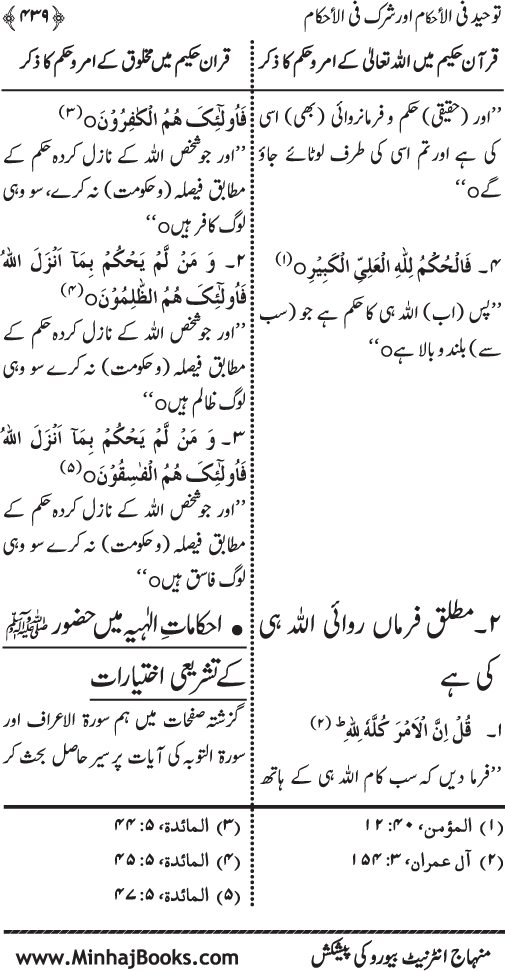 توحید فی الأحکام اور شرک فی الأحکام
﴿۴۳۹﴾
قرآن حکیم میں اللہ تعالیٰ کے امر و حکم کا ذکر
’’اور (حقیقی) حکم و فرمانروائی (بھی) اسی
کی ہے اور تم اسی کی طرف لوٹائے جاؤ
گے○‘‘
۴۔ فَالْحُكْمُ لِلّٰهِ الْعَلِيِّ الْكَبِيْرِ○(۱)
’’پس (اب) اللہ ہی کا حکم ہے جو (سب
سے) بلند و بالا ہے○‘‘
۲۔ مطلق فرماں روائی اللہ ہی
کی ہے
۱۔ قُلْ اِنَّ الْاَمْرَ كُلَّهٗ لِلّٰهِ ط (۲)
’’فرما دیں کہ سب کام اللہ ہی کے ہاتھ
(۱) المؤمن، ۴۰: ۱۲
(۲) آل عمران، ۳: ۱۵۴
قران حکیم میں مخلوق کے امر و حکم کا ذکر
فَاُولٰٓئِکَ هُمُ الْکٰفِرُوْنَ○(۳)
’’اور جو شخص اللہ کے نازل کردہ حکم کے
مطابق فیصلہ (و حکومت) نہ کرے، سو وہی
لوگ کافر ہیں○‘‘
۲۔ وَ مَنْ لَّمْ يَحْكُمْ بِمَآ اَنْزَلَ اللهُ
فَاُولٰٓئِکَ هُمُ الظّٰلِمُوْنَ○(۴)
’’اور جو شخص اللہ کے نازل کردہ حکم کے
مطابق فیصلہ (و حکومت) نہ کرے سو وہی
لوگ ظالم ہیں○‘‘
۳۔ وَ مَنْ لَّمْ يَحْكُمْ بِمَآ اَنْزَلَ اللهُ
فَاُولٰٓئِکَ هُمُ الْفٰسِقُوْنَ○(۵)
’’اور جو شخص اللہ کے نازل کردہ حکم کے
مطابق فیصلہ (و حکومت) نہ کرے سو وہی
لوگ فاسق ہیں○‘‘
• احکاماتِ الٰہیہ میں حضور ﷺ
کے تشریعی اختیارات
گزشتہ صفحات میں ہم سورۃ الاعراف اور
سورۃ التوبہ کی آیات پر سیر حاصل بحث کر
(۳) المائدة، ۵: ۴۴
(۴) المائدة، ۵: ۴۵
(۵) المائدة، ۵: ۴۷
منہاج انٹرنیٹ بیورو کی پیشکش
www.MinhajBooks.com